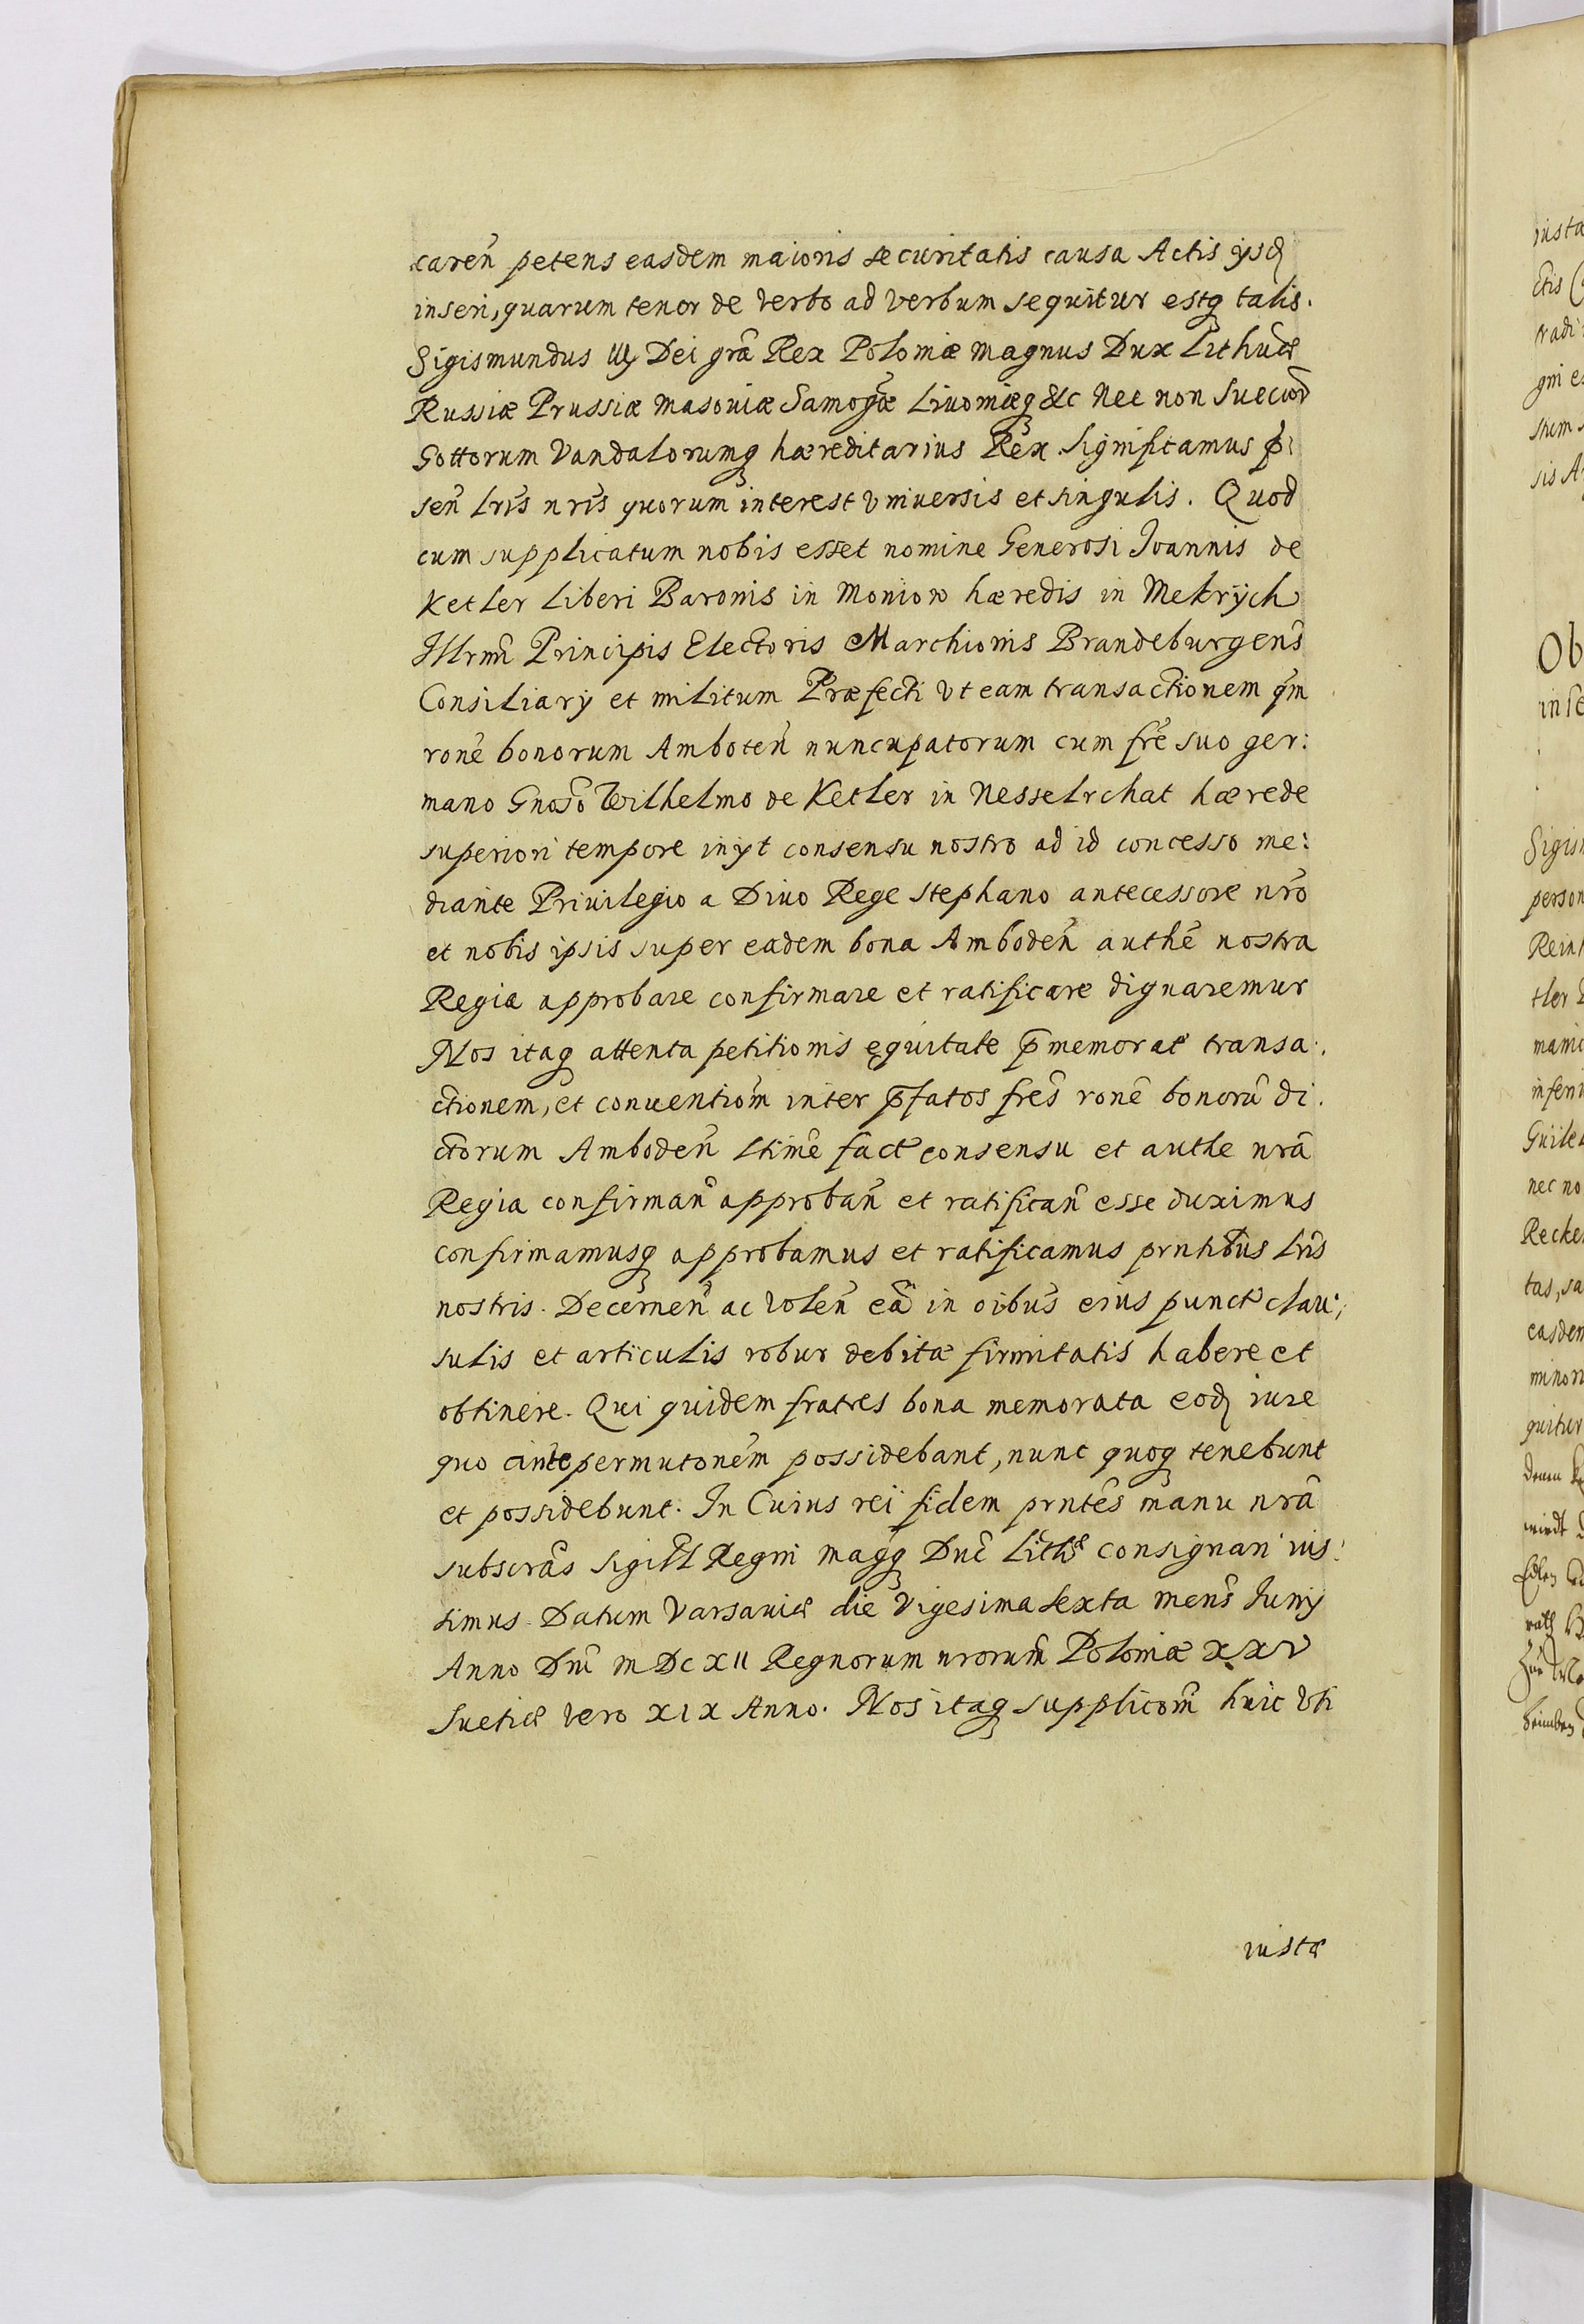 caren̄ petens easdem maioris securitatis causa Actis ijsd
inseri, quarum tenor de verbo ad verbum sequitur estq talis.
Sigismundus III Dei grā Rex Poloniæ Magnus Dux Lithuæ
Russiæ Prussiæ Masouiæ Samogæ Liuoniæq &c Nec non Suecior
Gottorum Vandalorumq hæreditarius Rex. Significamus p̄:
sen̄ Lris nris quorum interest vniuersis et singulis. Quod
cum supplicatum nobis esset nomine Generosi Joannis de
Ketler Liberi Baronis in Moniow hæredis in Mekrÿch
Illrmi Principis Electoris Marchionis Brandeburgens
Consiliarij et militum Præfecti vt eam transactionem qm
rone bonorum Amboten̄ nuncupatorum cum fre suo ger:
mano Gnoso Wilhelmo de Ketler in Nesselrchat hærede
superiori tempore inijt consensu nostro ad id concesso me:
diante Priuilegio a Diuo Rege Stephano antecessore nro
et nobis ipsis super eadem bona Amboden̄ authe nostra
Regia approbare confirmare et ratificare dignaremur
Nos itaq attenta petitionis equitate p̄memorat transa:
ctionem, et conuentiom inter p̄fatos fres rone bonorū di:
ctorum Amboden̄ ltime fact consensu et authe nrā
Regia confirman̄ approban̄ et ratifican̄ esse duximus
confirmamusq approbamus et ratificamus prntibus Lris
nostris. Decernen̄ ac volen̄ eā in oibus eius punct clau:
sulis et articulis robur debitæ firmitatis habere et
obtinere. Qui quidem fratres bona memorata eod iure
quo ante permutonem possidebant, nunc quoq tenebunt
et possidebunt. In Cuius rei fidem prntes manu nrā
subscras Sigill Regni Magq Duc Lith consignari ius:
simus. Datum Varsauiæ die Vigesima Sexta mens Junij
Anno Dni MDCXII Regnorum nrorum Poloniæ XXV
Suetiæ vero XIX Anno. Nos itaq supplicom huic vti
iustæ
iusta
ctis
tradi
gni e
sis A
Ob
inse
Sigis
person
Rein
tler
mani
inferi
Guile
nec no
Recke
tas, sa
easdem
minori
quitur